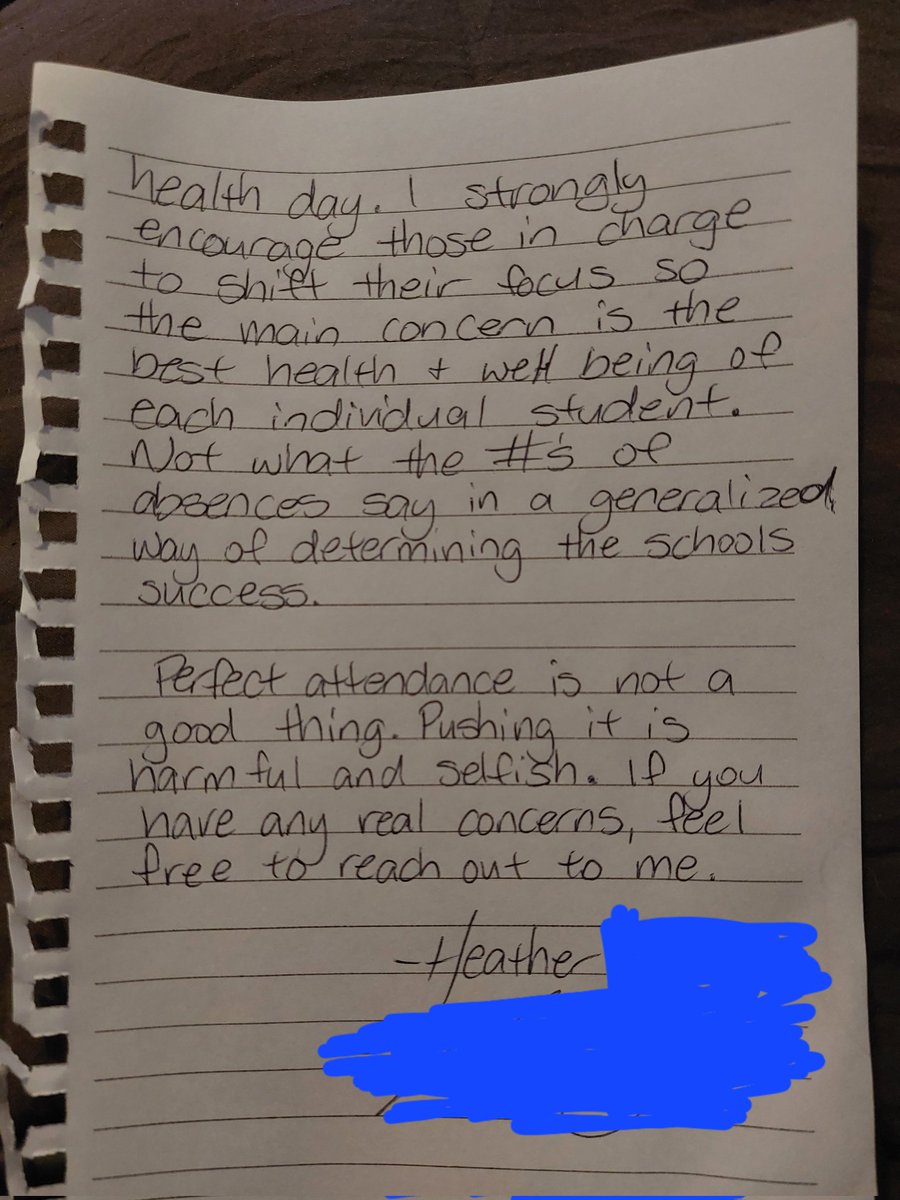 health day. I strongly
encourage those in charge
to shift their focus so
the main concern is the
best health + well being of
each individual student.
Not what the #'s of
absences say in a generalized
way of determining the schools
success.
Perfect attendance is not a
good thing. Pushing it is
harmful and selfish. If you
have any real concerns, feel
free to reach out to me.
-Heather